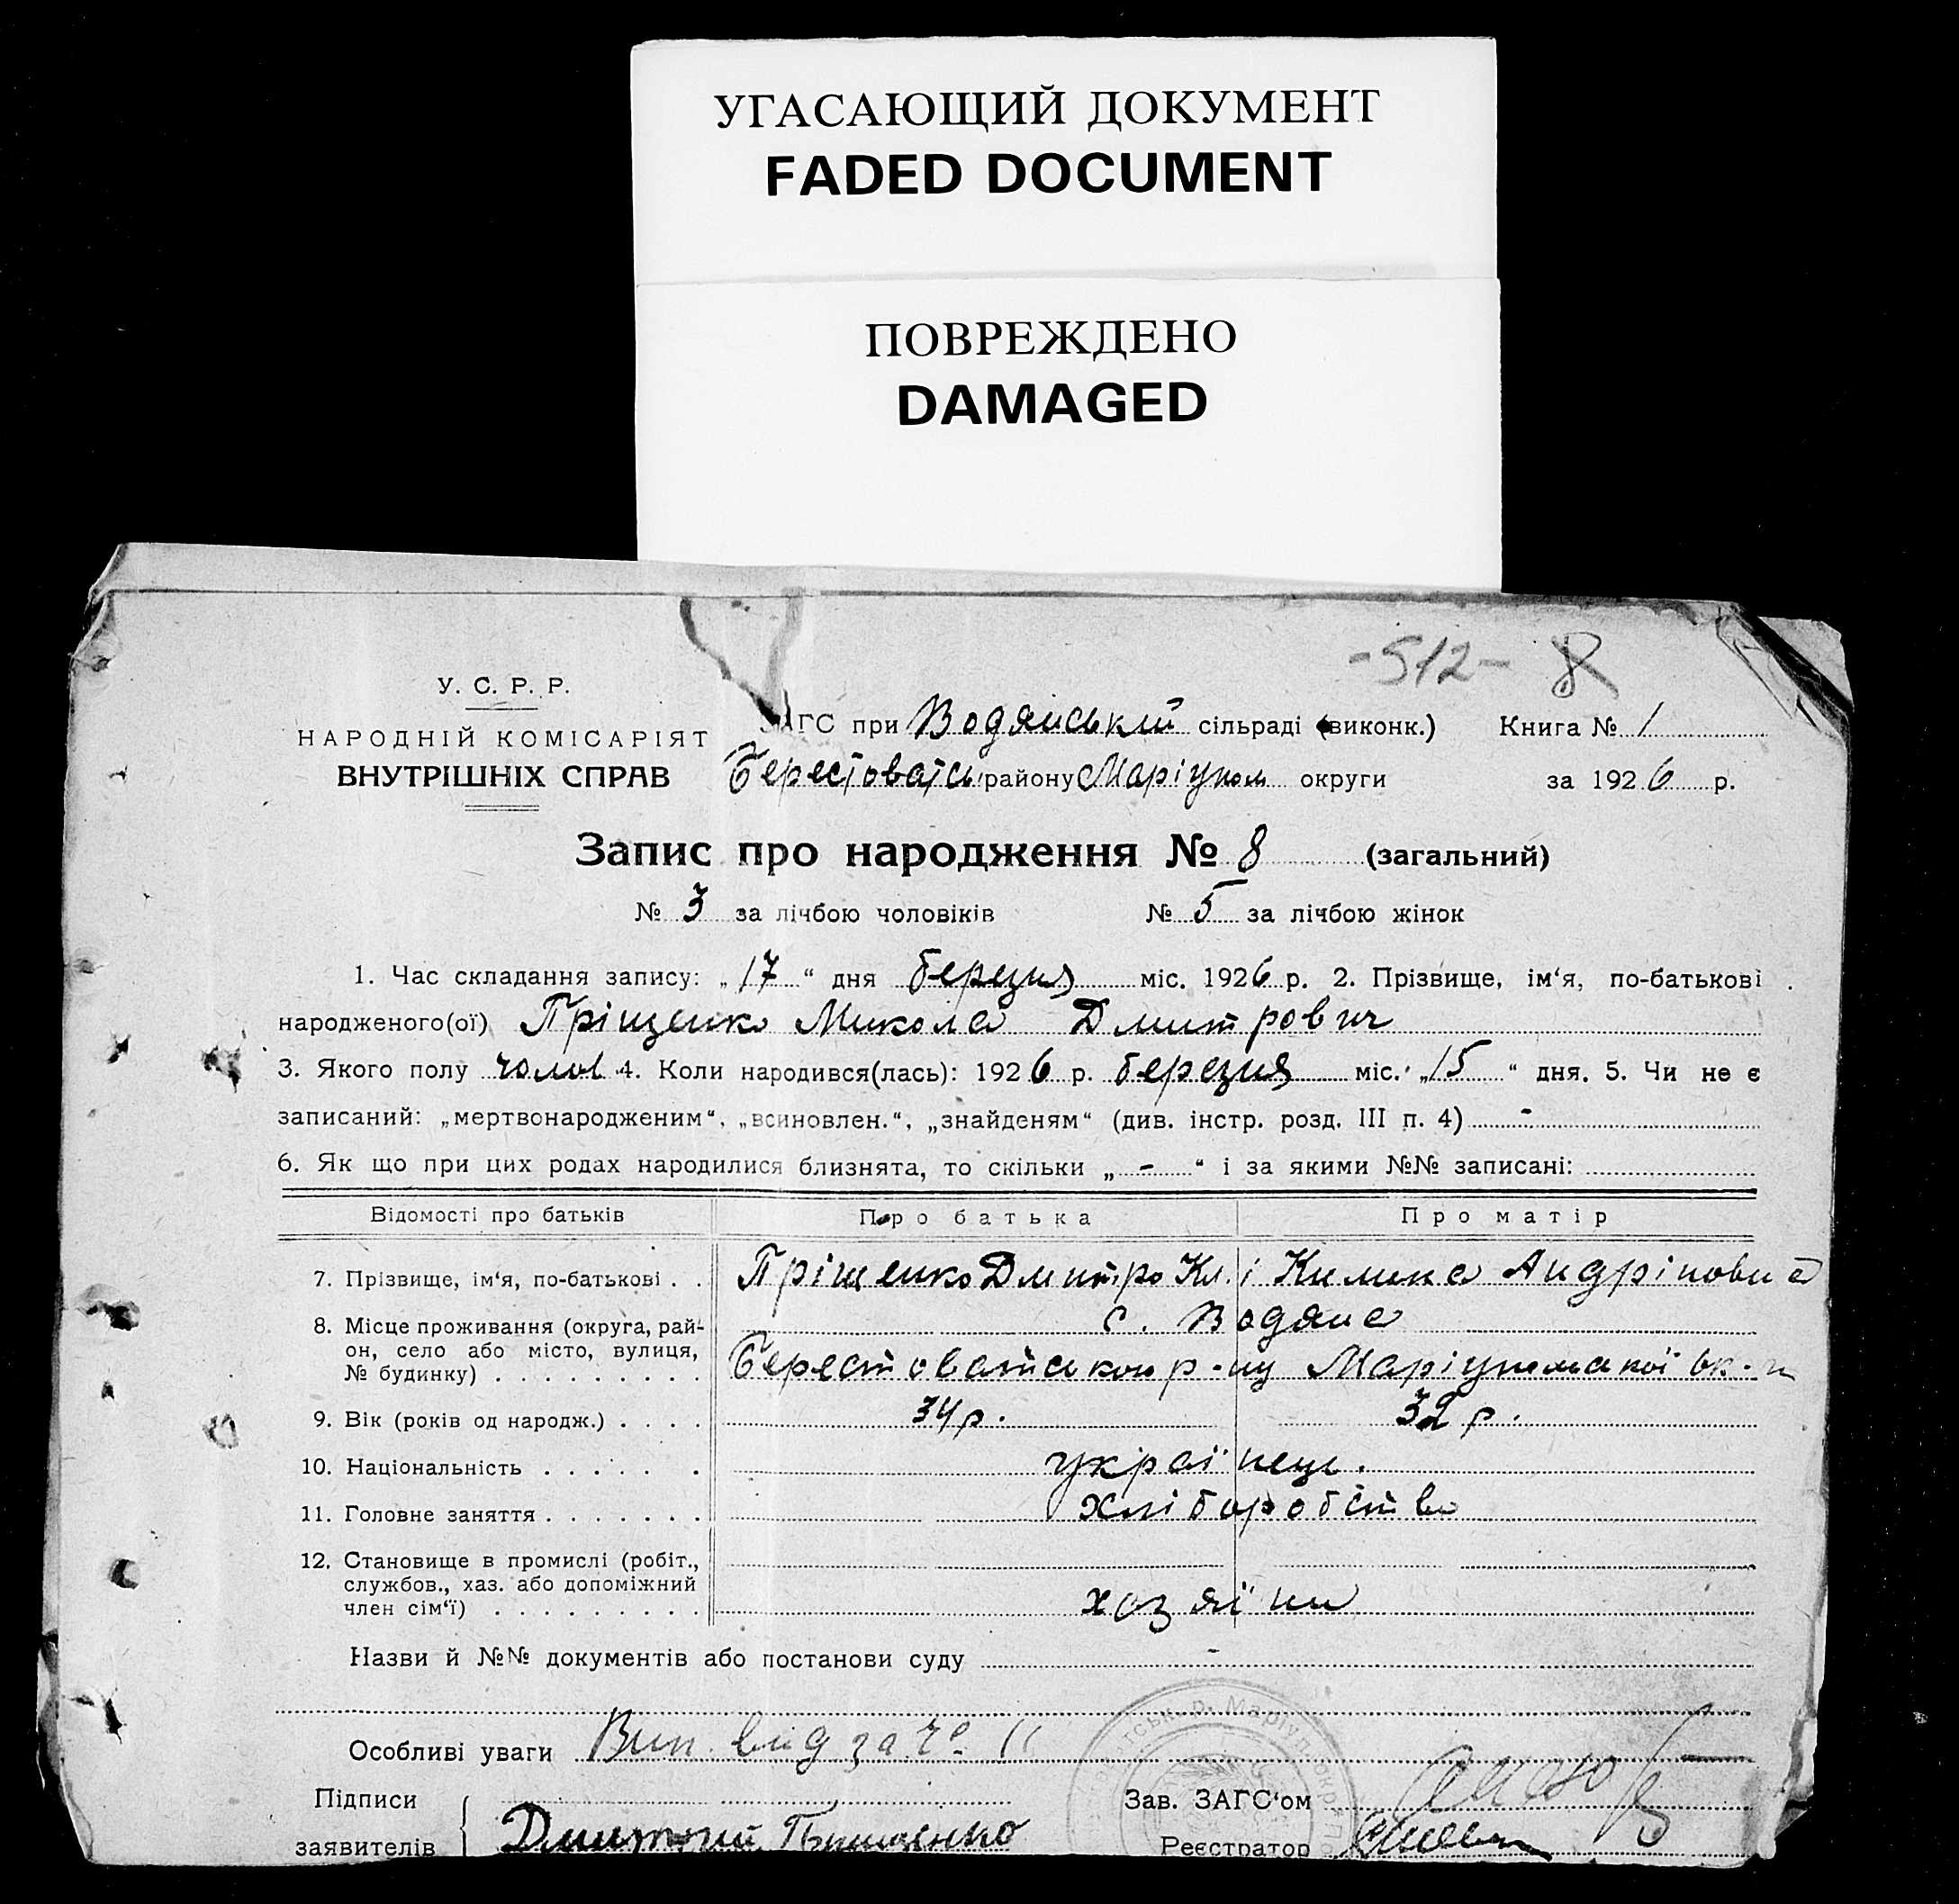 УГАСАЮЩИЙ ДОКУМЕНТ
FADED DOCUMENT
ПОВРЕЖДЕНО
DAMAGED
-512- 8
У. С. Р. Р.
НАРОДНІЙ КОМІСАРІЯТ
ВНУТРІШНІХ СПРАВ
ЗАГС при Водянській сільраді (виконк.) Книга № 1
Берестоватсь району Маріупол округи за 1926 р.
Запис про народження № 8 (загальний)
№ 3 за лічбою чоловіків № 5 за лічбою жінок
1. Час складання запису: „17“ дня березня міс. 1926 р. 2. Прізвище, ім‘я, по-батькові
народженого(ої) Пріщенко Микола Дмитрович
3. Якого полу чолов 4. Коли народився(лась): 1926 р. березня міс. „15“ дня. 5. Чи не є
записаний: „мертвонародженим“, „всиновлен.“, „знайденям“ (див. інстр. розд. III п. 4) -
6. Як що при цих родах народилися близнята, то скільки „-“ і за якими №№ записані:
Відомості про батьків Про батька Про матір
7. Прізвище, ім‘я, по-батькові . . Пріщенко Дмитро Кл. і Килина Андріповна
8. Місце проживання (округа, рай- с. Водяна
он, село або місто, вулиця,
№ будинку) . . . . . . . . . Берестоватського р-ну Маріупольської ок-и
9. Вік (років од народж.) . . . . 34 р. 32 р.
10. Національність . . . . . . українец.
11. Головне заняття . . . . . . . хліборобство
12. Становище в промислі (робіт.,
службов., хаз. або допоміжний
член сім‘ї) . . . . . . . . . хозяїни
Назви й №№ документів або постанови суду -
Особливі уваги Вип. вид за № 11
Підписи Зав. ЗАГС‘ом
заявителів Дмитрий Прищенко Реєстратор
тськ. р. Маріуп. окр.